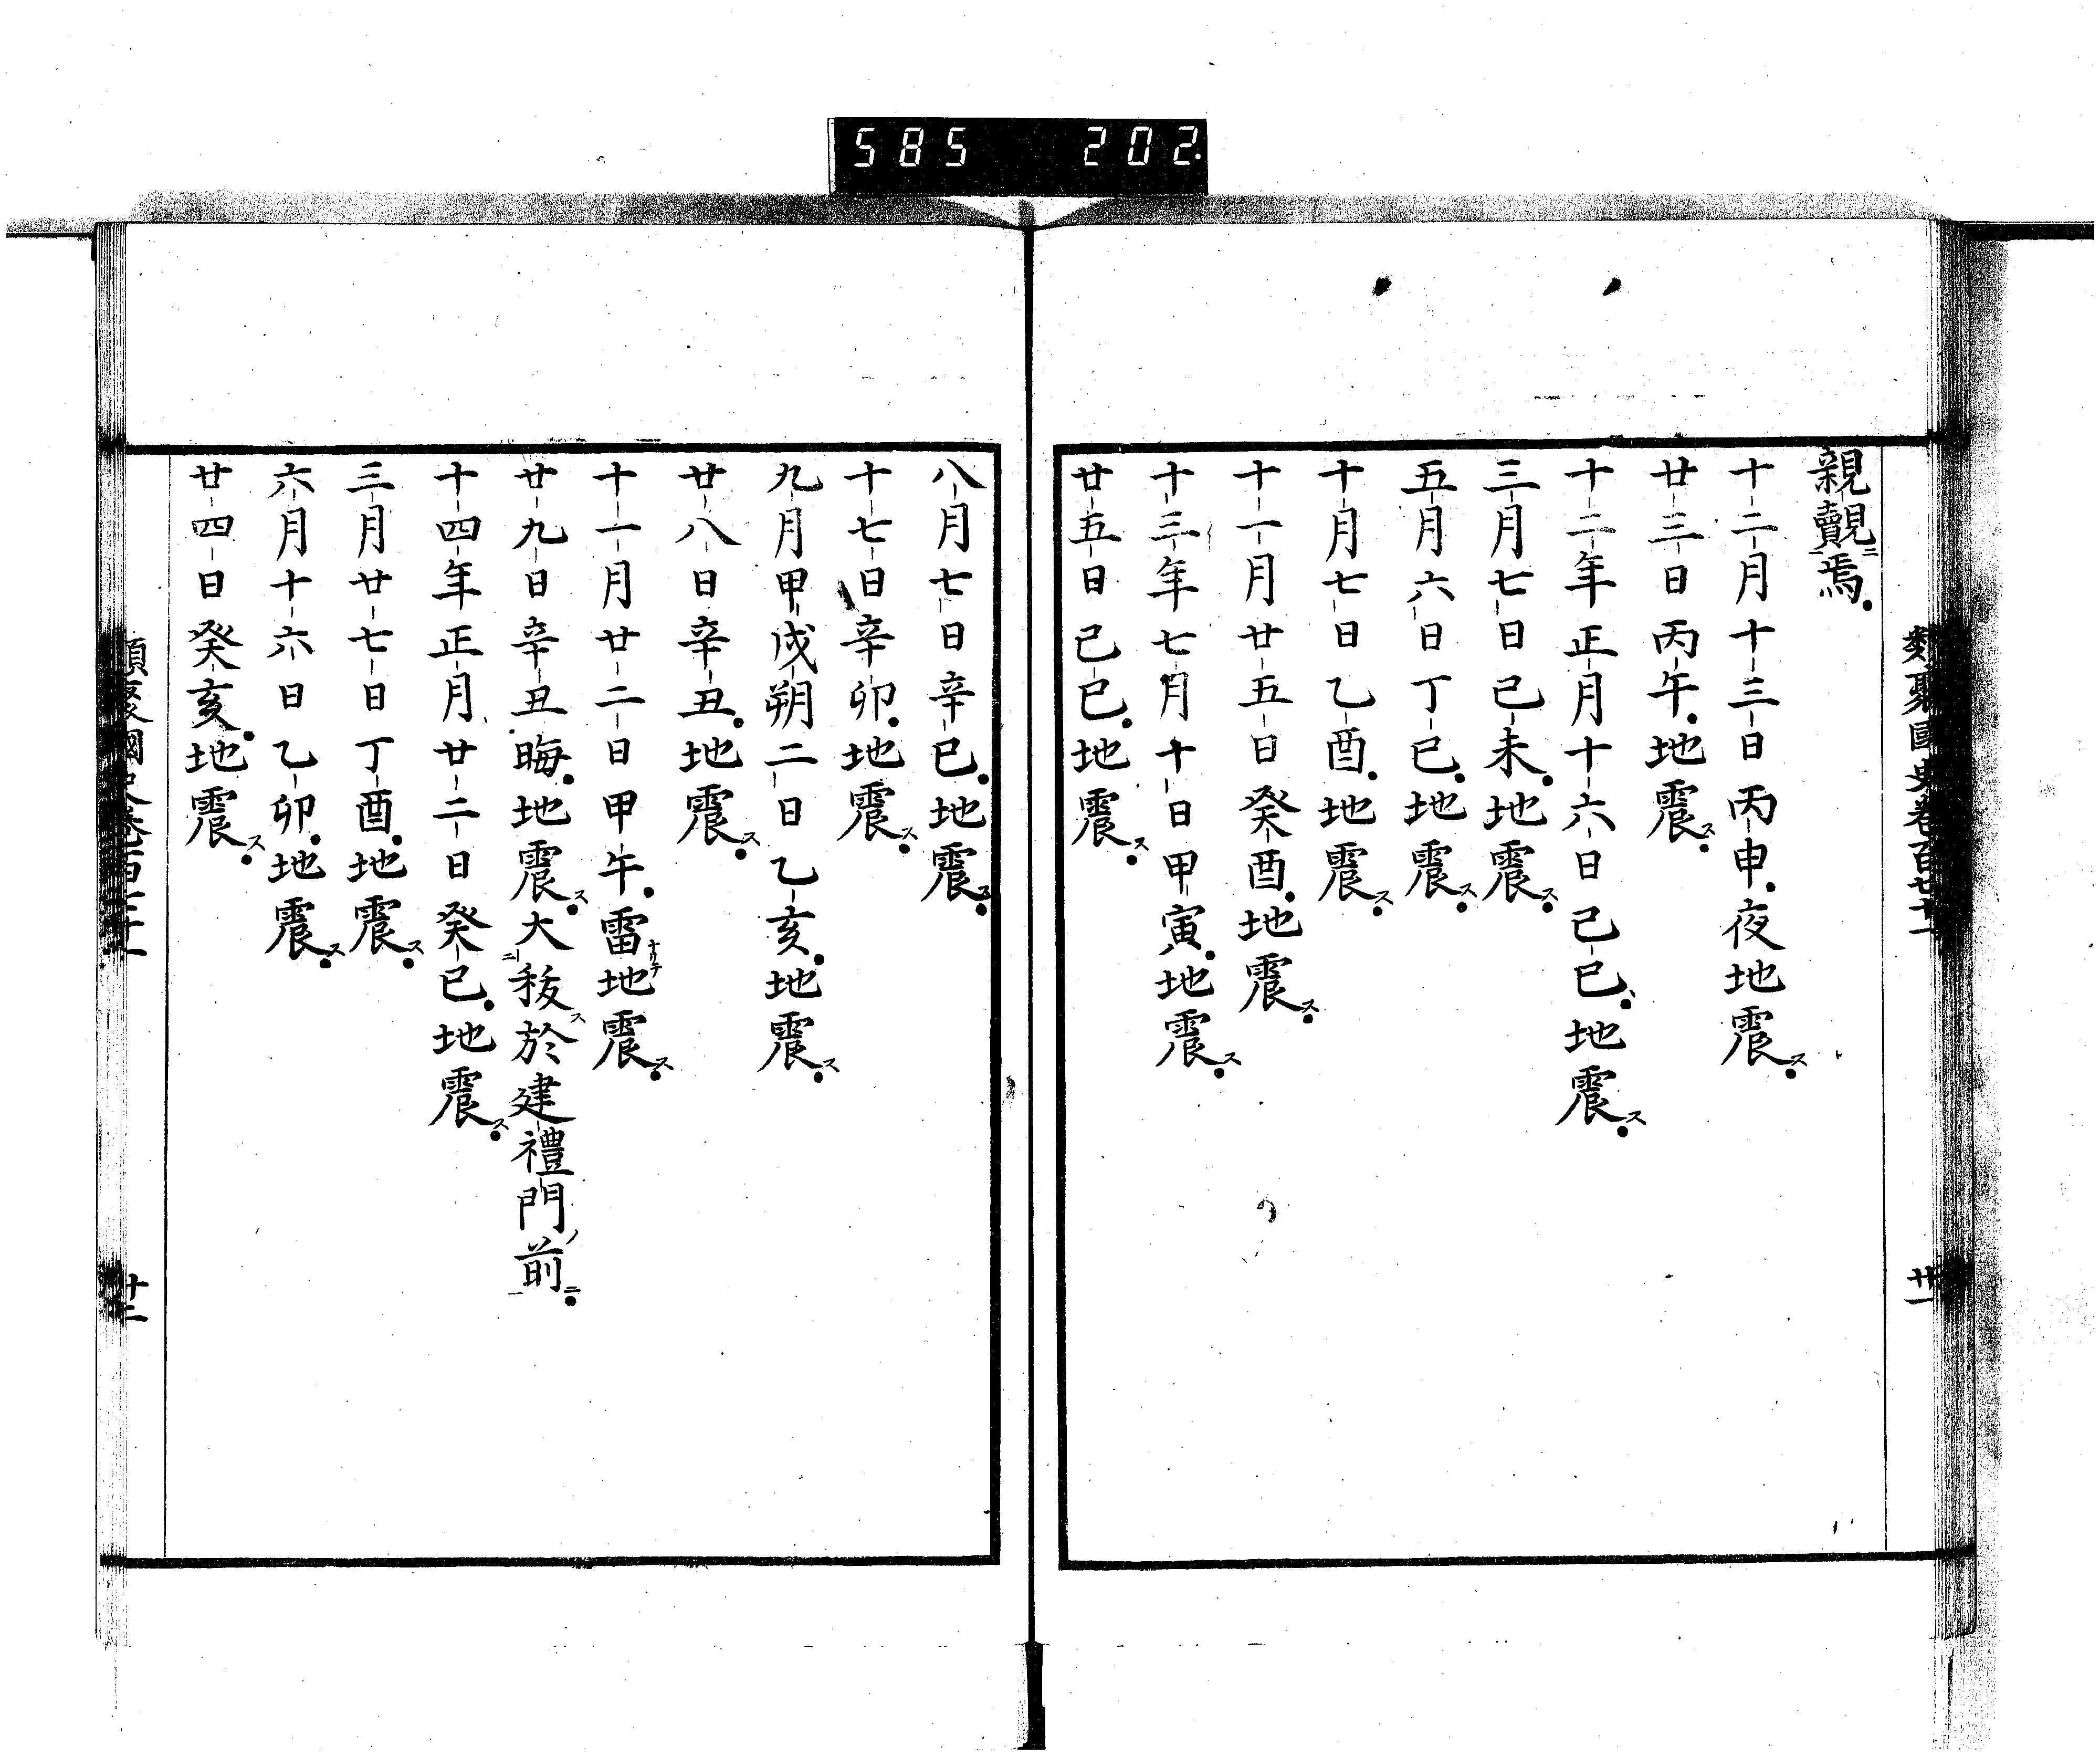 585 202
類聚國史卷百七十一
廿一
親覿焉
十二月十三日丙申夜地震ス
廿三日丙午地震ス
十二年正月十六日己巳地震ス
三月七日己未地震ス
五月六日丁巳地震ス
十月七日乙酉地震ス
十一月廿五日癸酉地震ス
十三年七月十日甲寅地震ス
廿五日己巳地震ス
八月七日辛巳地震ス
十七日辛卯地震ス
九月甲戌朔二日乙亥地震ス
廿八日辛丑地震ス
十一月廿二日甲午雷ナリテ地震ス
廿九日辛丑晦地震ス大ニ祓ス於建禮門ノ前ニ
十四年正月廿二日癸巳地震ス
三月廿七日丁酉地震ス
六月十六日乙卯地震ス
廿四日癸亥地震ス
類聚國史卷百七十一
廿二